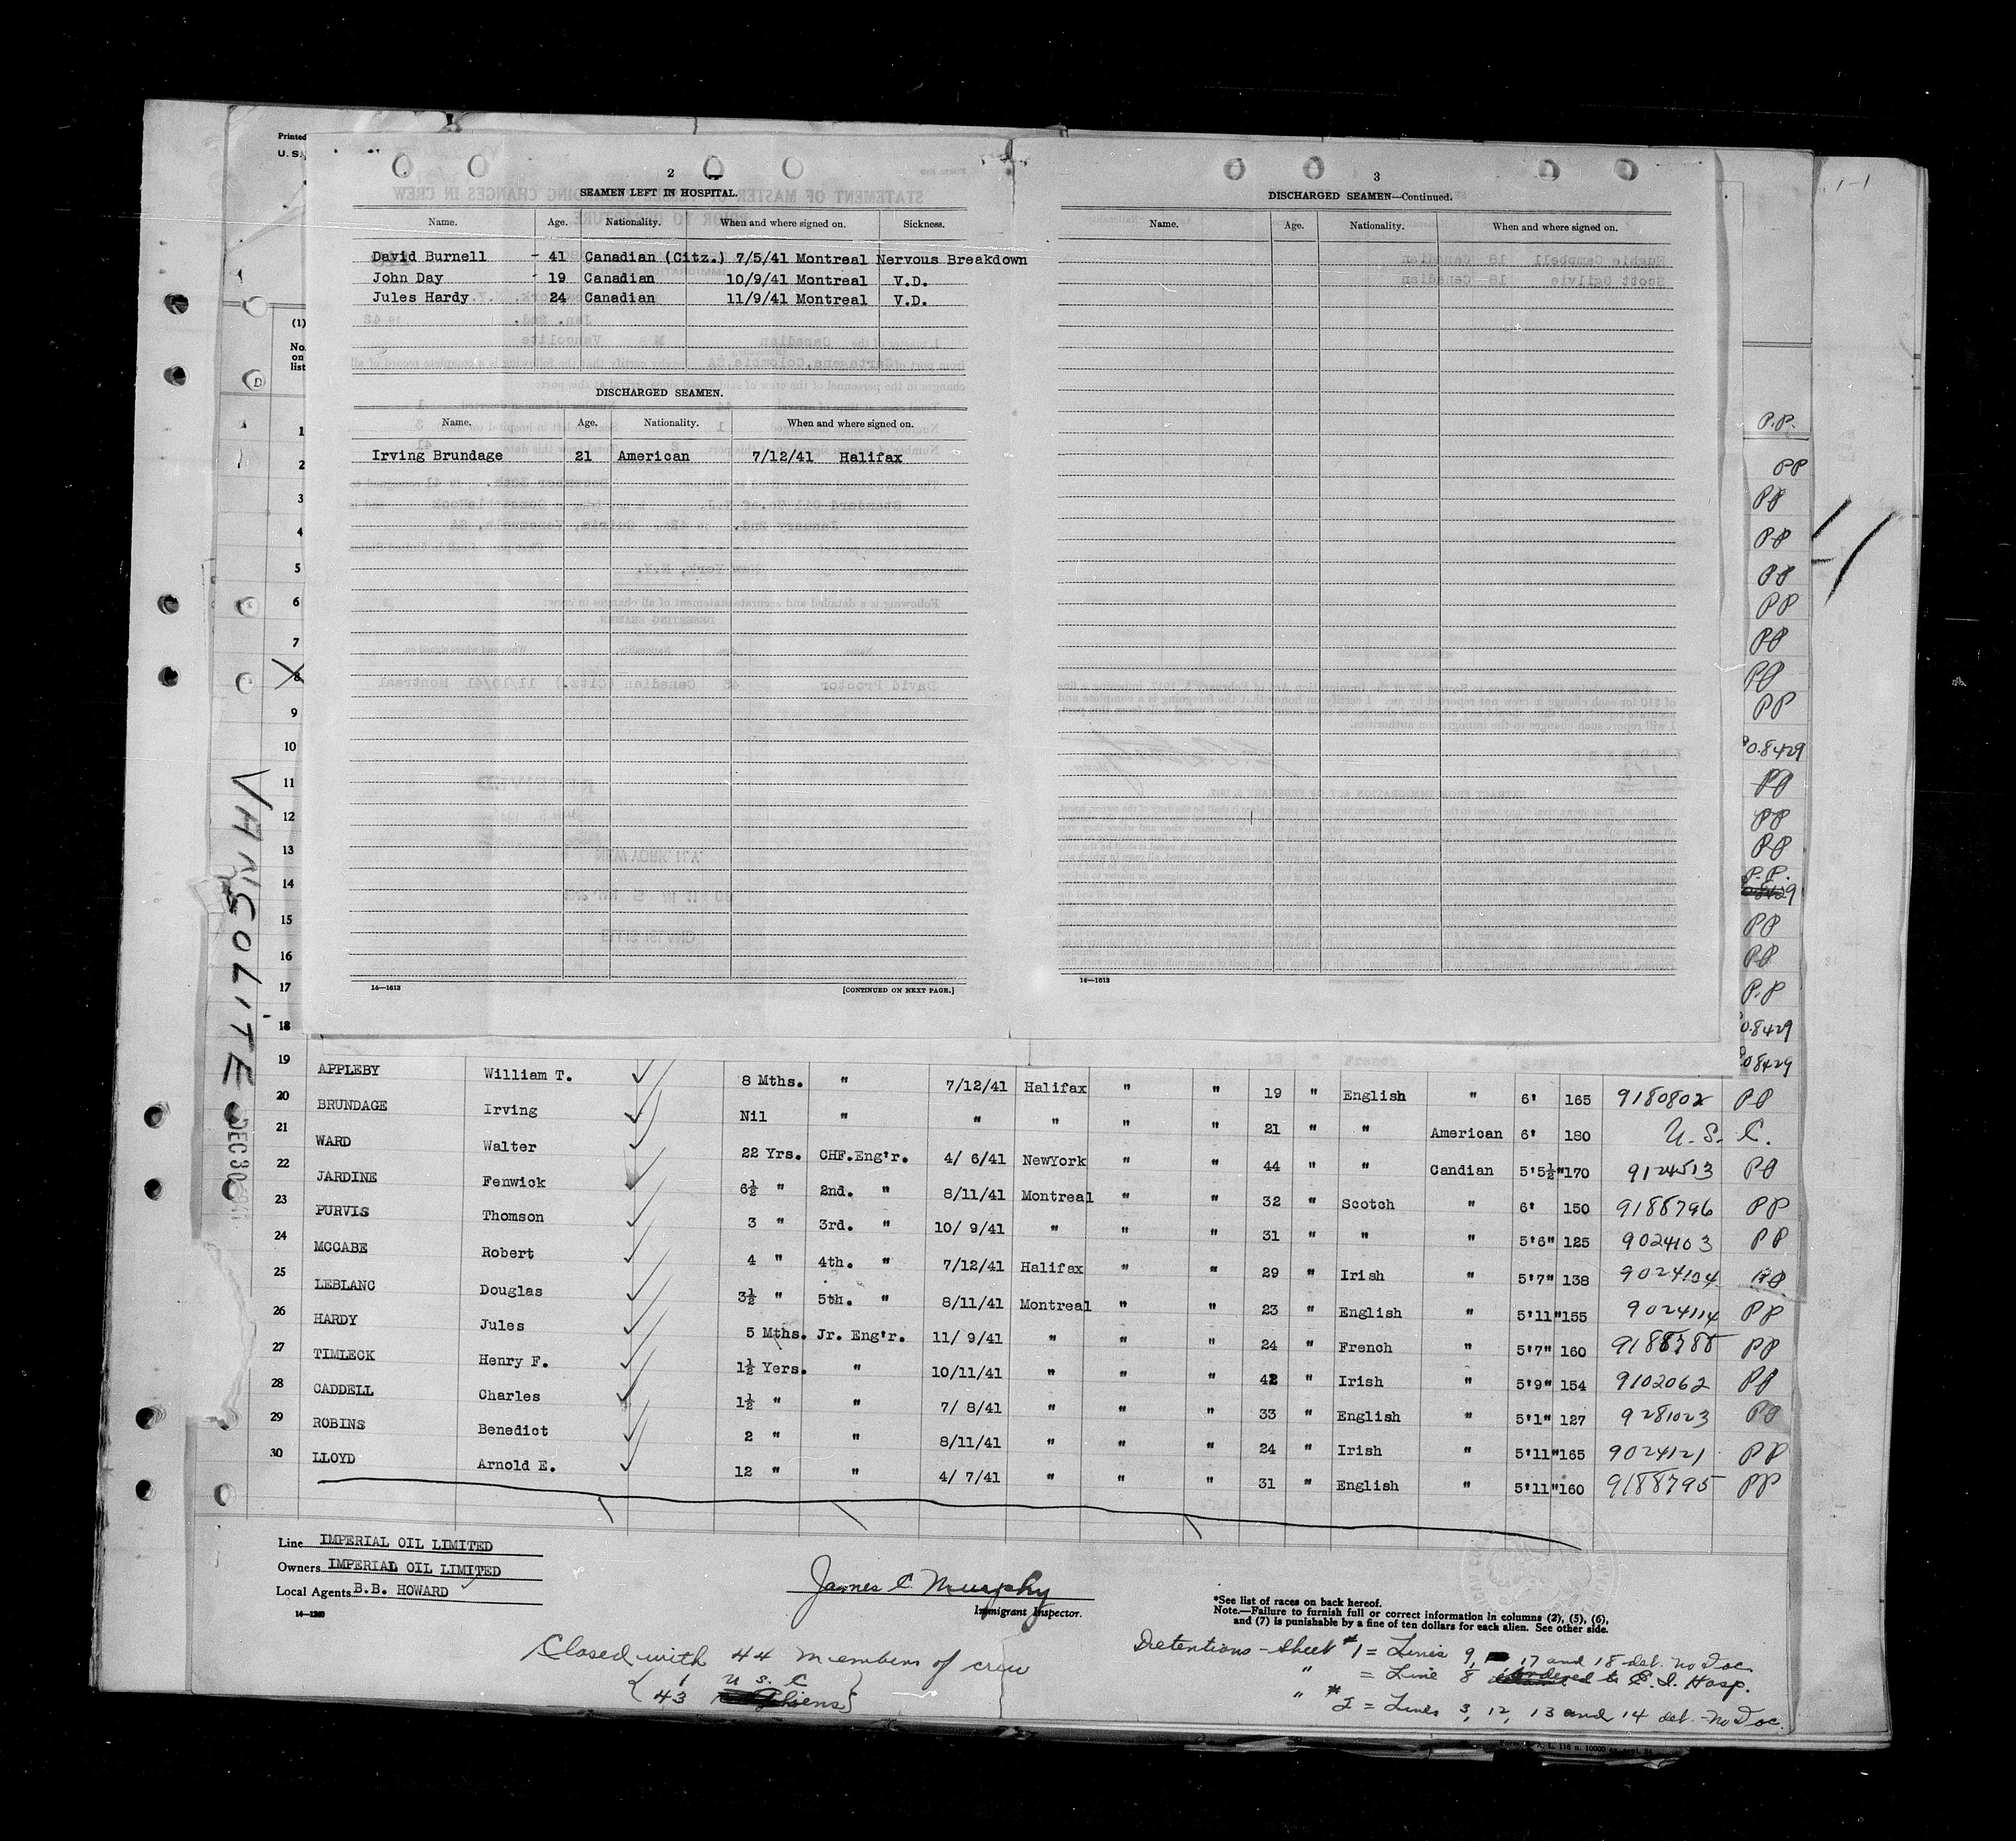 Printed
U. S.
2
SEAMEN LEFT IN HOSPITAL.
Name. Age. Nationality. When and where signed on. Sickness.
David Burnell - 41 Canadian (Citz.) 7/5/41 Montreal Nervous Breakdown
John Day - 19 Canadian 10/9/41 Montreal V.D.
Jules Hardy 24 Canadian 11/9/41 Montreal V.D.
DISCHARGED SEAMEN.
Name. Age. Nationality. When and where signed on.
Irving Brundage 21 American 7/12/41 Halifax
14—1613 [CONTINUED ON NEXT PAGE.]
3
DISCHARGED SEAMEN—Continued.
Name. Age. Nationality. When and where signed on.
14—1613
(1)
No.
on
list
1 P.P.
2 PP
3 PP
4 PP
5 PP
6 PP
7 PP
8 PP
9 PP
10 0.8429
11 PP
12 PP
13 PP
14 P.P.
15 PP
16 PP
17 P.P
18 0.8429
08429
VANCOLITE
DEC 30 1941
19 APPLEBY William T. 8 Mths. " 7/12/41 Halifax " " 19 " English " 6' 165 9180802 PP
20 BRUNDAGE Irving Nil " " " " " 21 " " American 6' 180 U. S. C.
21 WARD Walter 22 Yrs. CHF.Eng'r. 4/ 6/41 NewYork " " 44 " " Candian 5'5½" 170 9124513 PP
22 JARDINE Fenwick 6½ " 2nd. " 8/11/41 Montreal " " 32 " Scotch " 6' 150 9188796 PP
23 PURVIS Thomson 3 " 3rd. " 10/ 9/41 " " " 31 " " " 5'6" 125 9024103 PP
24 MCCABE Robert 4 " 4th. " 7/12/41 Halifax " " 29 " Irish " 5'7" 138 9024104 PP
25 LEBLANC Douglas 3½ " 5th. " 8/11/41 Montreal " " 23 " English " 5'11" 155 9024114 PP
26 HARDY Jules 5 Mths. Jr. Eng'r. 11/ 9/41 " " " 24 " French " 5'7" 160 9188788 PP
27 TIMLECK Henry F. 1½ Yers. " 10/11/41 " " " 42 " Irish " 5'9" 154 9102062 PP
28 CADDELL Charles 1½ " " 7/ 8/41 " " " 33 " English " 5'1" 127 9281023 PP
29 ROBINS Benedict 2 " " 8/11/41 " " " 24 " Irish " 5'11" 165 9024121 PP
30 LLOYD Arnold E. 12 " " 4/ 7/41 " " " 31 " English " 5'11" 160 9188795 PP
Line IMPERIAL OIL LIMITED
Owners IMPERIAL OIL LIMITED
Local Agents B.B. HOWARD
14—1240
James C Murphy
Immigrant Inspector.
*See list of races on back hereof.
Note.—Failure to furnish full or correct information in columns (2), (5), (6),
and (7) is punishable by a fine of ten dollars for each alien. See other side.
Closed with 44 members of crew
{ 1 U S. C }
{ 43 Aliens }
Detentions - Sheet #1 = Lines 9, 17 and 18 det. no Doc.
" = Line 8 ordered to E. I. Hosp.
" #2 = Lines 3, 12, 13 and 14 det. - no Doc.